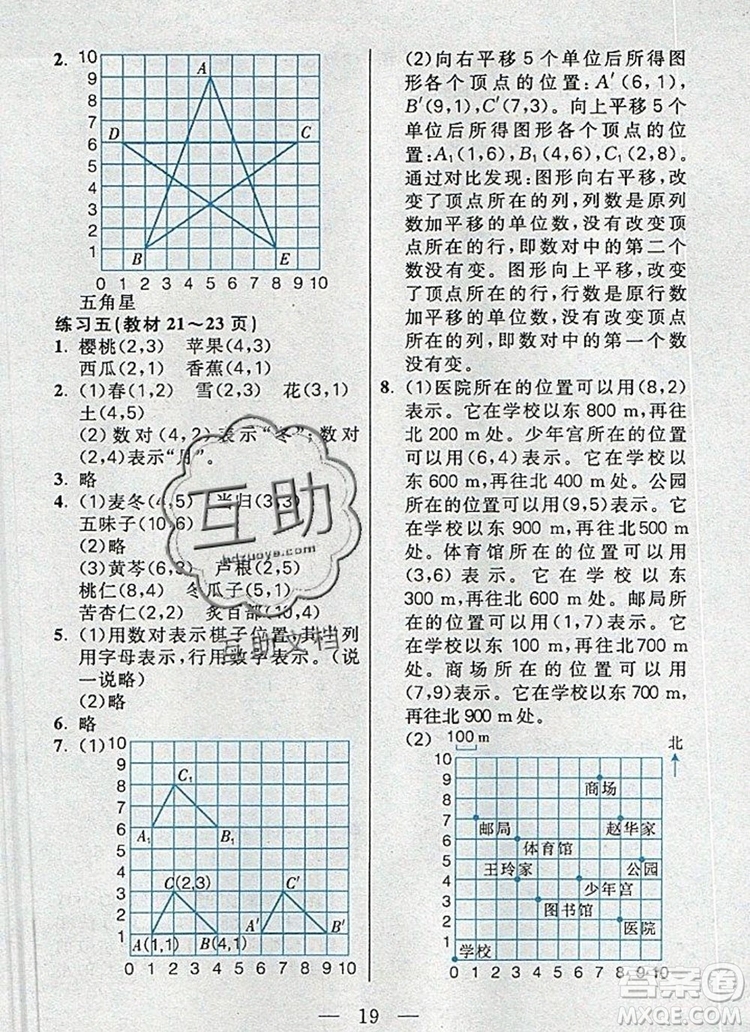 2.
10
9
8
7
6
5
4
3
2
1
A
D
C
B
E
0 1 2 3 4 5 6 7 8 9 10
五角星
练习五(教材21～23页)
1. 樱桃(2,3) 苹果(4,3)
西瓜(2,1) 香蕉(4,1)
2. (1)春(1,2) 雪(2,3) 花(3,1)
土(4,5)
(2)数对(4,2)表示“冬”;数对
(2,4)表示“月”。
3. 略
4. (1)麦冬(4,5) 当归(3,3)
五味子(10,6)
(2)略
(3)黄芩(6,3) 芦根(2,1)
桃仁(8,4) 冬瓜子(7,2)
苦杏仁(2,4) 炙百部(4,1)
5. (1)用数对表示棋子位置,其中列
用字母表示,行用数字表示。(说
一说略)
(2)略
6. 略
7. (1)
10
9
8
7
6
5
4
3
2
1
C₁
A₁
B₁
C(2,3)
C′
A(1,1)
B(4,1)
A′
B′
0 1 2 3 4 5 6 7 8 9 10
(2)向右平移5个单位后所得图
形各个顶点的位置:A′(6,1),
B′(9,1),C′(7,3)。向上平移5个
单位后所得图形各个顶点的位
置:A₁(1,6),B₁(4,6),C₁(2,8)。
通过对比发现:图形向右平移,改
变了顶点所在的列,列数是原列
数加平移的单位数,没有改变顶
点所在的行,即数对中的第二个
数没有变。图形向上平移,改变
了顶点所在的行,行数是原行数
加平移的单位数,没有改变顶点
所在的列,即数对中的第一个数
没有变。
8. (1)医院所在的位置可以用(8,2)
表示。它在学校以东800 m,再往
北200 m处。少年宫所在的位置
可以用(6,4)表示。它在学校以
东600 m,再往北400 m处。公园
所在的位置可以用(9,5)表示。
它在学校以东900 m,再往北500 m
处。体育馆所在的位置可以用
(3,6)表示。它在学校以东
300 m,再往北600 m处。邮局所
在的位置可以用(1,7)表示。它
在学校以东100 m,再往北700 m
处。商场所在的位置可以用
(7,9)表示。它在学校以东700 m,
再往北900 m处。
(2)
100 m
北
10
9
8
7
6
5
4
3
2
1
商场
邮局
赵华家
体育馆
王玲家
公园
少年宫
图书馆
医院
学校
0 1 2 3 4 5 6 7 8 9 10
— 19 —
互助
hdzuoye.com
互助文档
答案圈
MXQE.COM